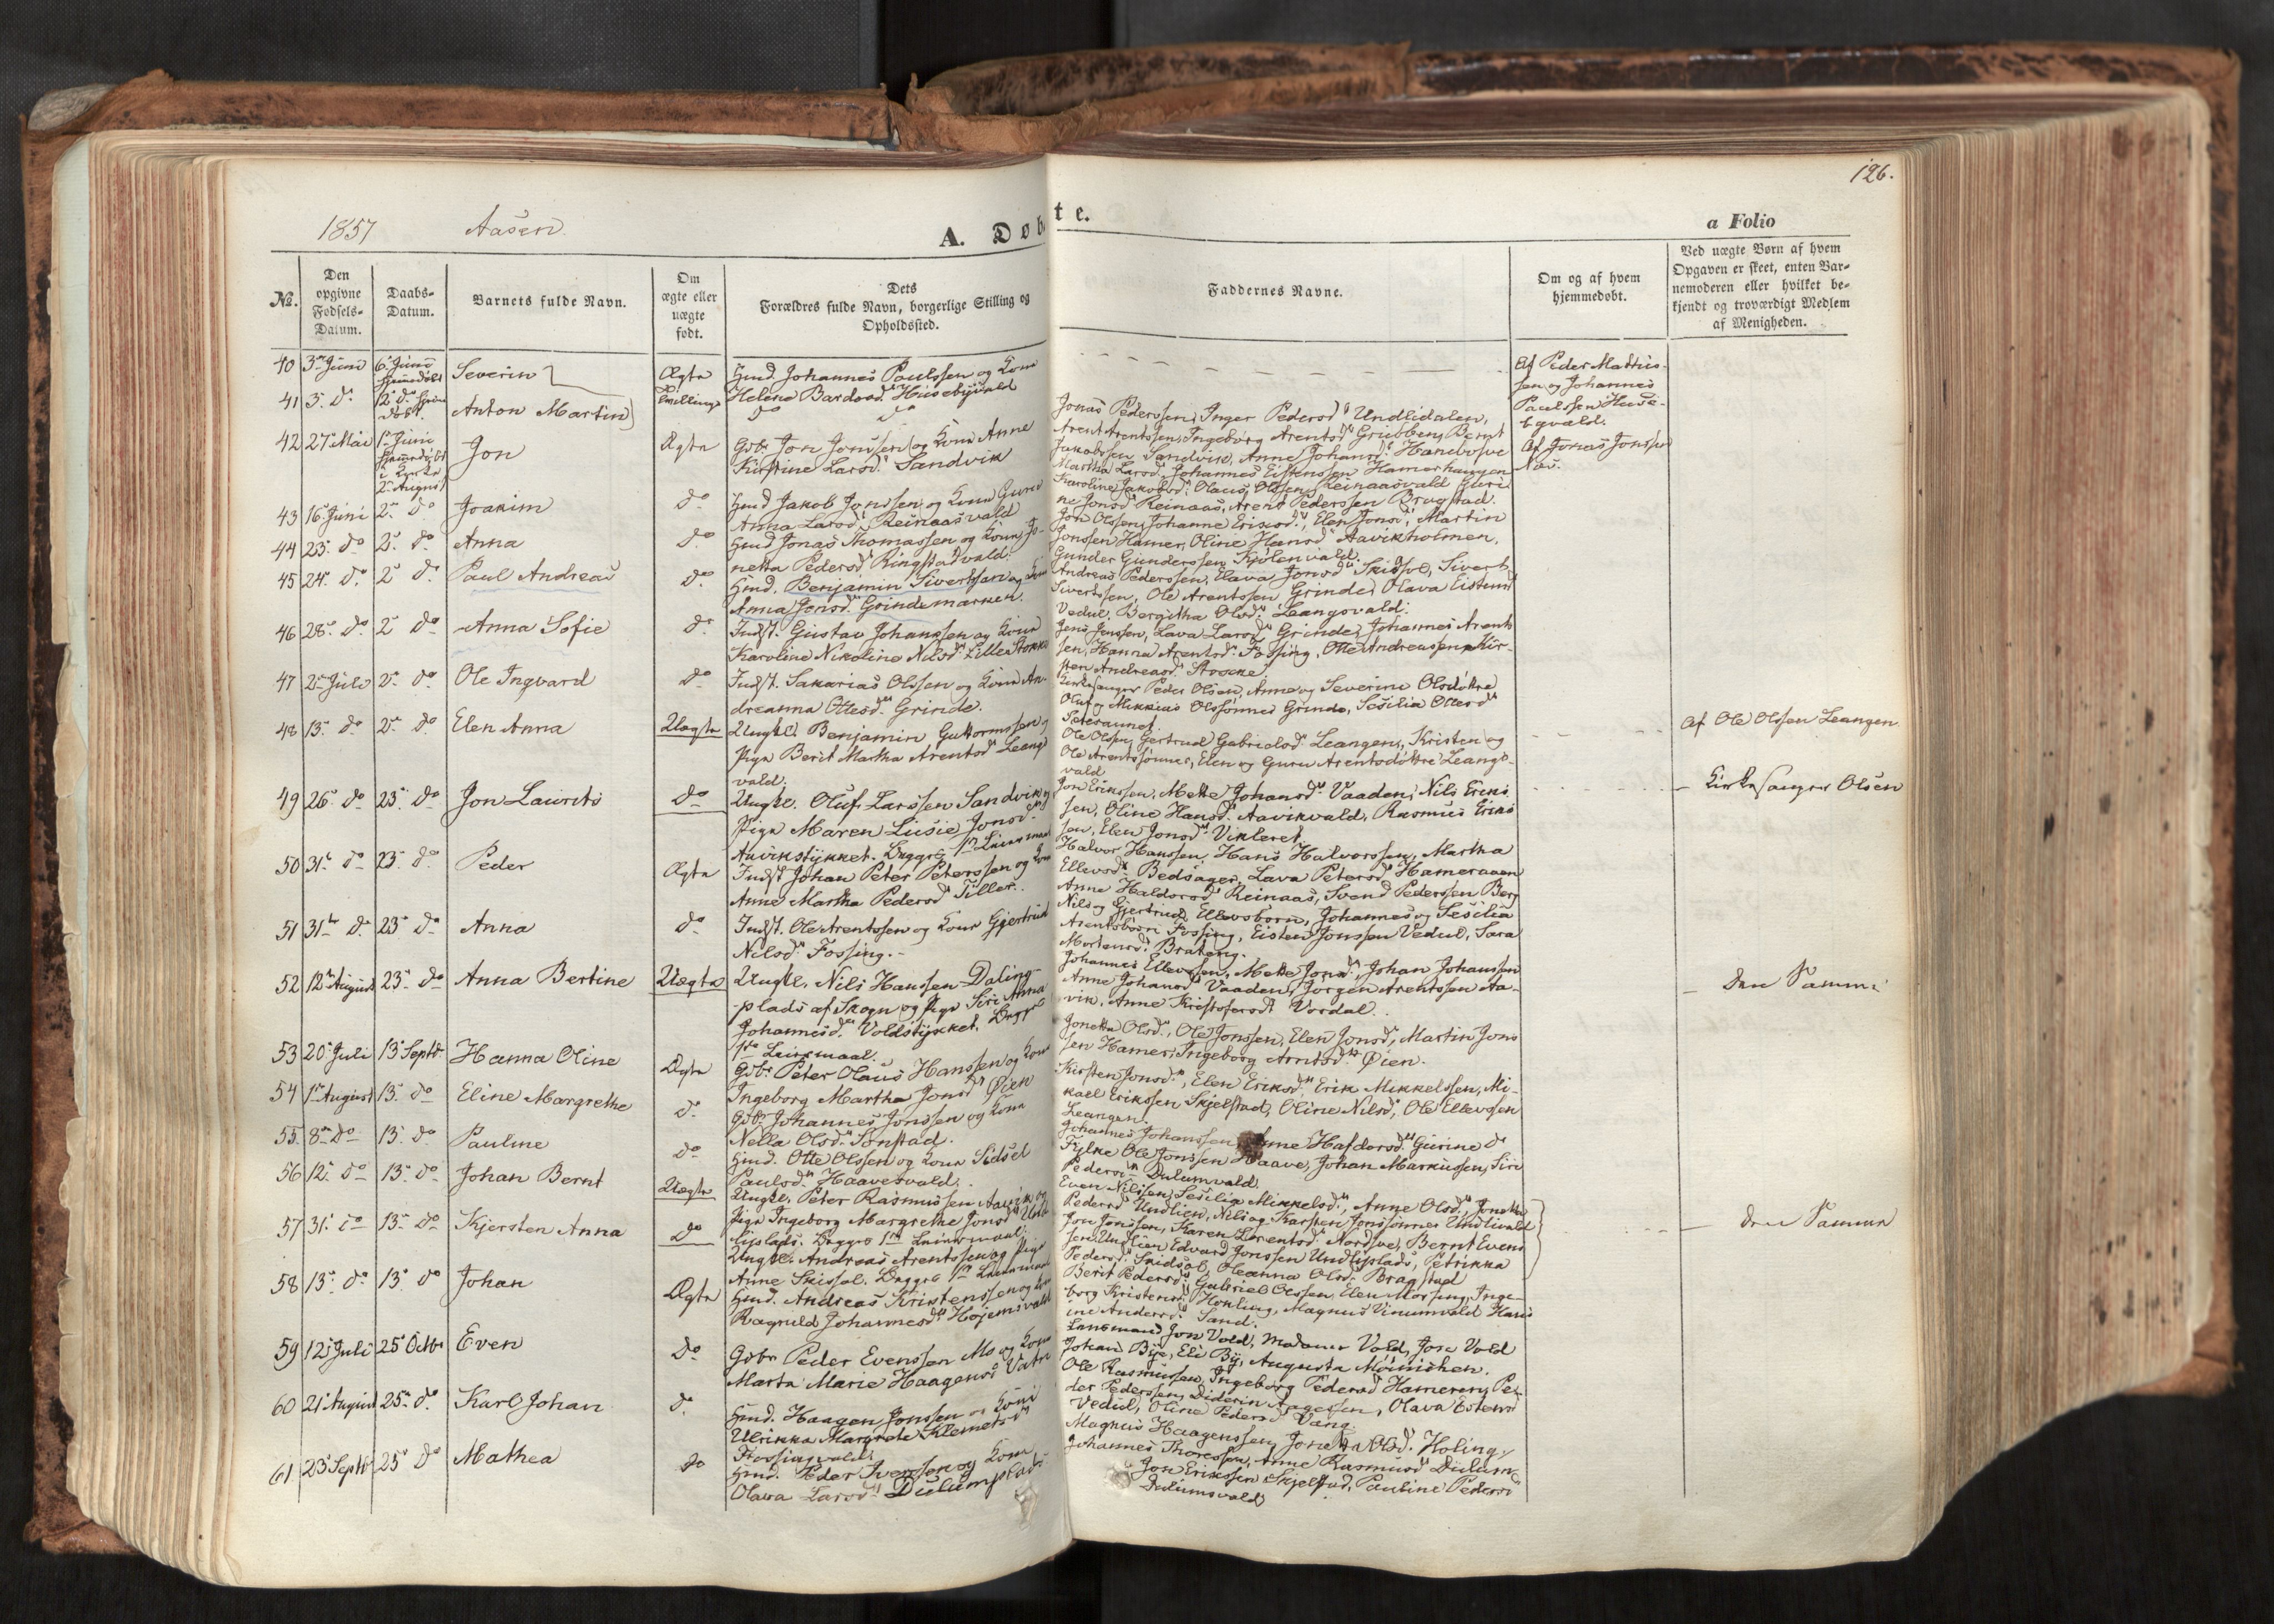 126.
1857 Aasen
A. Døbte.
a Folio
No.
Den opgivne Fødsels-Datum.
Daabs-Datum.
Barnets fulde Navn.
Om ægte eller uægte født.
Dets Forældres fulde Navn, borgerlige Stilling og Opholdssted.
Faddernes Navne.
Om og af hvem hjemmedøbt.
Ved uægte Børn af hvem Opgaven er skeet, enten Barnemoderen eller hvilket bekjendt og troværdigt Medlem af Menigheden.
40 3 Juni 6 Juni Severin Ægte Hmd. Johannes Paulssen og Kone
Af Peder Mathis-
sen og Johannes
Paulssen Huse-
byvald.
41 3 do 12 do Anton Martin Tvillinger Helene Bardosd. Husebyvald
do do
42 27 Mai 1 Juni Jon Ægte Gbr. Jon Jonssen og Kone Anne
2 August
Kirstine Larsd. Sandvik
Jonas Pederssen, Inger Pedersd. Undlidalen,
Arent Arentssen, Ingeborg Arentsd. Bernt
Jakobssen Sandvik, Anne Johansd.
Af Jonas Jonssen
43 16 Juni 2 do Joakim do Hmd Jakob Jonssen og Kone Guru
Anna Larsd. Reinaasvald
Martha Larsd. Johannes Eistenssen Hamerhaugen
Karoline Jakobsd. Olaus Olssen Reinaasvald Guri-
ne Jonsd. Reinaas, Arent Pederssen Bragstad.
44 23 do 2 do Anna do Hmd Jonas Thomassen og Kone Jo-
netta Pedersd. Ringstadvald.
Jon Olssen, Johanne Eriksd., Elen Jonsd., Martin
Jonssen Hamer, Oline Hansd. Aavikholmen,
Gunder Gunderssen Kjølenvald.
45 24 do 2 do Paul Andreas do Hmd. Benjamin Sivertssen og Kone
Anna Jonsd. Grindemarken.
Andreas Pederssen, Elava Jonsd. Skidsol, Sivert
Sivertssen, Ole Arentssen Grinde, Olava Eistensd
Vedul. Bergitha Olsd. Leangsvald.
46 28 do 2 do Anna Sofie do Indst. Gustav Johanssen og Kone
Karoline Nikoline Nilsd. Lille Stokke
Jens Jenssen, Lava Larsd. Grinde, Johannes Arent-
sen, Hanna Arentsd. Fossing, Otte Andreassen, Kir-
sten Andreasd. Stokke
47 2 Juli 2 do Ole Ingvard do Indst. Sakarias Olssen og Kone An-
dreanna Ottesd. Grinde.
Kirkesanger Peder Olsen, Anne og Severine Olsdøttre
Oluf og Mikkias Olssønner Grinde, Sesilia Ottesd
Seteraunet
48 13 do 2 do Elen Anna Uægte Ungkl. Benjamin Guttormssen og
Pige Berit Martha Arentsd. Leangs-
vald.
Ole Olsen, Gjertrud Gabrielsd. Leangen, Kristen og
Ole Arentssønner, Elen og Guru Arentsdøttre Leangs-
vald
Af Ole Olssen Leangen
49 26 do 23 do Jon Laurits do Ungkl. Oluf Larssen Sandvik og
Pige Maren Lusie Jonsd.
Aavikstykket. Begges 1ste Leiermaal
Jon Erikssen, Mette Johansd. Vaaden, Nils Eriks-
sen, Oline Hansd. Aavikvald, Rasmus Eriks-
sen, Elen Jonsd. Vikleret
Kirkesanger Olsen
50 31 do 23 do Peder Ægte Indst Johan Peter Peterssen og Kone
Anne Martha Pedersd. Tiller.
Halvor Hanssen, Hans Halvorssen, Martha
Ellevsd. Bedsager, Lava Petersd. Hameraaen
Anne Haldorsd. Reinaas, Svend Pederssen Berg
51 31te do 23 do Anna do Indst. Ole Arentssen og Kone Gjertrud
Nilsd. Fossing.
Nils og Gjertrud Ellevsbørn, Johannes og Sesilia
Arentsbørn Fossing, Eisten Jonssen Vedul, Sara
Mortensd. Braten.
52 12 August 23 do Anna Bertine Uægte Ungkl. Nils Hanssen Daling-
plads af Skogn og Pige Siri Anna
Johannesd. Voldstykket. Begges
1ste Leiermaal.
Johannes Ellevssen, Mette Jonsd., Johan Johanssen
Anne Johansd. Vaaden, Jørgen Arentssen Aa-
vik, Anne Kristofersd. Vordal.
den Samme
53 20 Juli 13 Septb. Hanna Oline Ægte Gbr. Peter Olaus Hanssen og Kone
Ingeborg Martha Jonsd. Øien
Jonetta Olsd., Ole Jonssen, Elen Jonsd., Martin Jons-
sen Hamer, Ingeborg Arntsd. Øien.
54 1 August 13 do Eline Margrethe do Gbr. Johannes Jonssen og Kone
Nella Olsd. Sønstad.
Kirsten Jonsd., Elen Eriksd. Erik Mikkelssen, Mi-
kael Erikssen Skjelstad, Oline Nilsd., Ole Ellevssen
Leangen.
55 8 do 13 do Pauline do Hmd. Otte Olssen og Kone Sidsel
Paulsd. Haavesvald.
Johannes Johanssen, Anne Hafdorsd. Gurine do
Fylke Ole Jonssen Haave, Johan Markussen, Siri
Pedersd. Dulumvald.
56 12 do 13 do Johan Bernt Uægte Ungkl. Peter Rasmussen Aavik og
Pige Ingeborg Margrethe Jonsd.
Begges 1ste Leiermaal.
Even Nilssen, Sesilia Mikkelsd., Anne Olsd., Jonetta
Pedersd Undlien, Nils og Karsten Jonssønner Undlivald
57 31 do 13 do Kjersten Anna do Ungkl. Andreas Arentssen og Pige
Anne Skissol. Begges 1ste Leiermaal
Jon Jonssen, Karen Lorentsd. Nordsve, Bernt Evens-
sen Undlien Edvard Jonssen Undliplads, Petrikka
Pedersd. Skidsol, Oleanna Olsd. Bragstad
den Samme
58 13 do 13 do Johan Ægte Hmd. Andreas Kristenssen og Kone
Ragnild Johannesd. Højemsvald
Berit Pedersd. Gabriel Olssen, Elen Morsung, Inge-
borg Kristensd. Hokling, Magnus Vinumvald Hans
ine Andersd. Sand.
59 12 Juli 25 Octbr Even do Gbr Peder Evenssen Mo og Kone
Marta Marie Haagensd Vatn
Lensmand Jon Vold, Madame Vold, Jon Vold
Johan Bye, Eli By, Augusta Mønichen.
60 21 August 25 do Karl Johan do Hmd. Haagen Jonssen og Kone
Ulrikka Margrete Klemetsd
Fossingvald.
Ole Rasmussen, Ingeborg Pedersd Hameren, Pe-
der Pederssen, Diderik Aagessen, Olava Estensd
Vedul, Oline Pedersd Vang.
61 23 Septbr 25 do Mathea do Hmd. Peder Iverssen og Kone
Olava Larsd. Dulumplads
Magnus Haagenssen, Jonetta Olsd. Holing,
Johannes Thoressen, Anne Rasmusd Dulum
Jon Erikssen Skjelstad, Pauline Pedersd
Dulumsvald